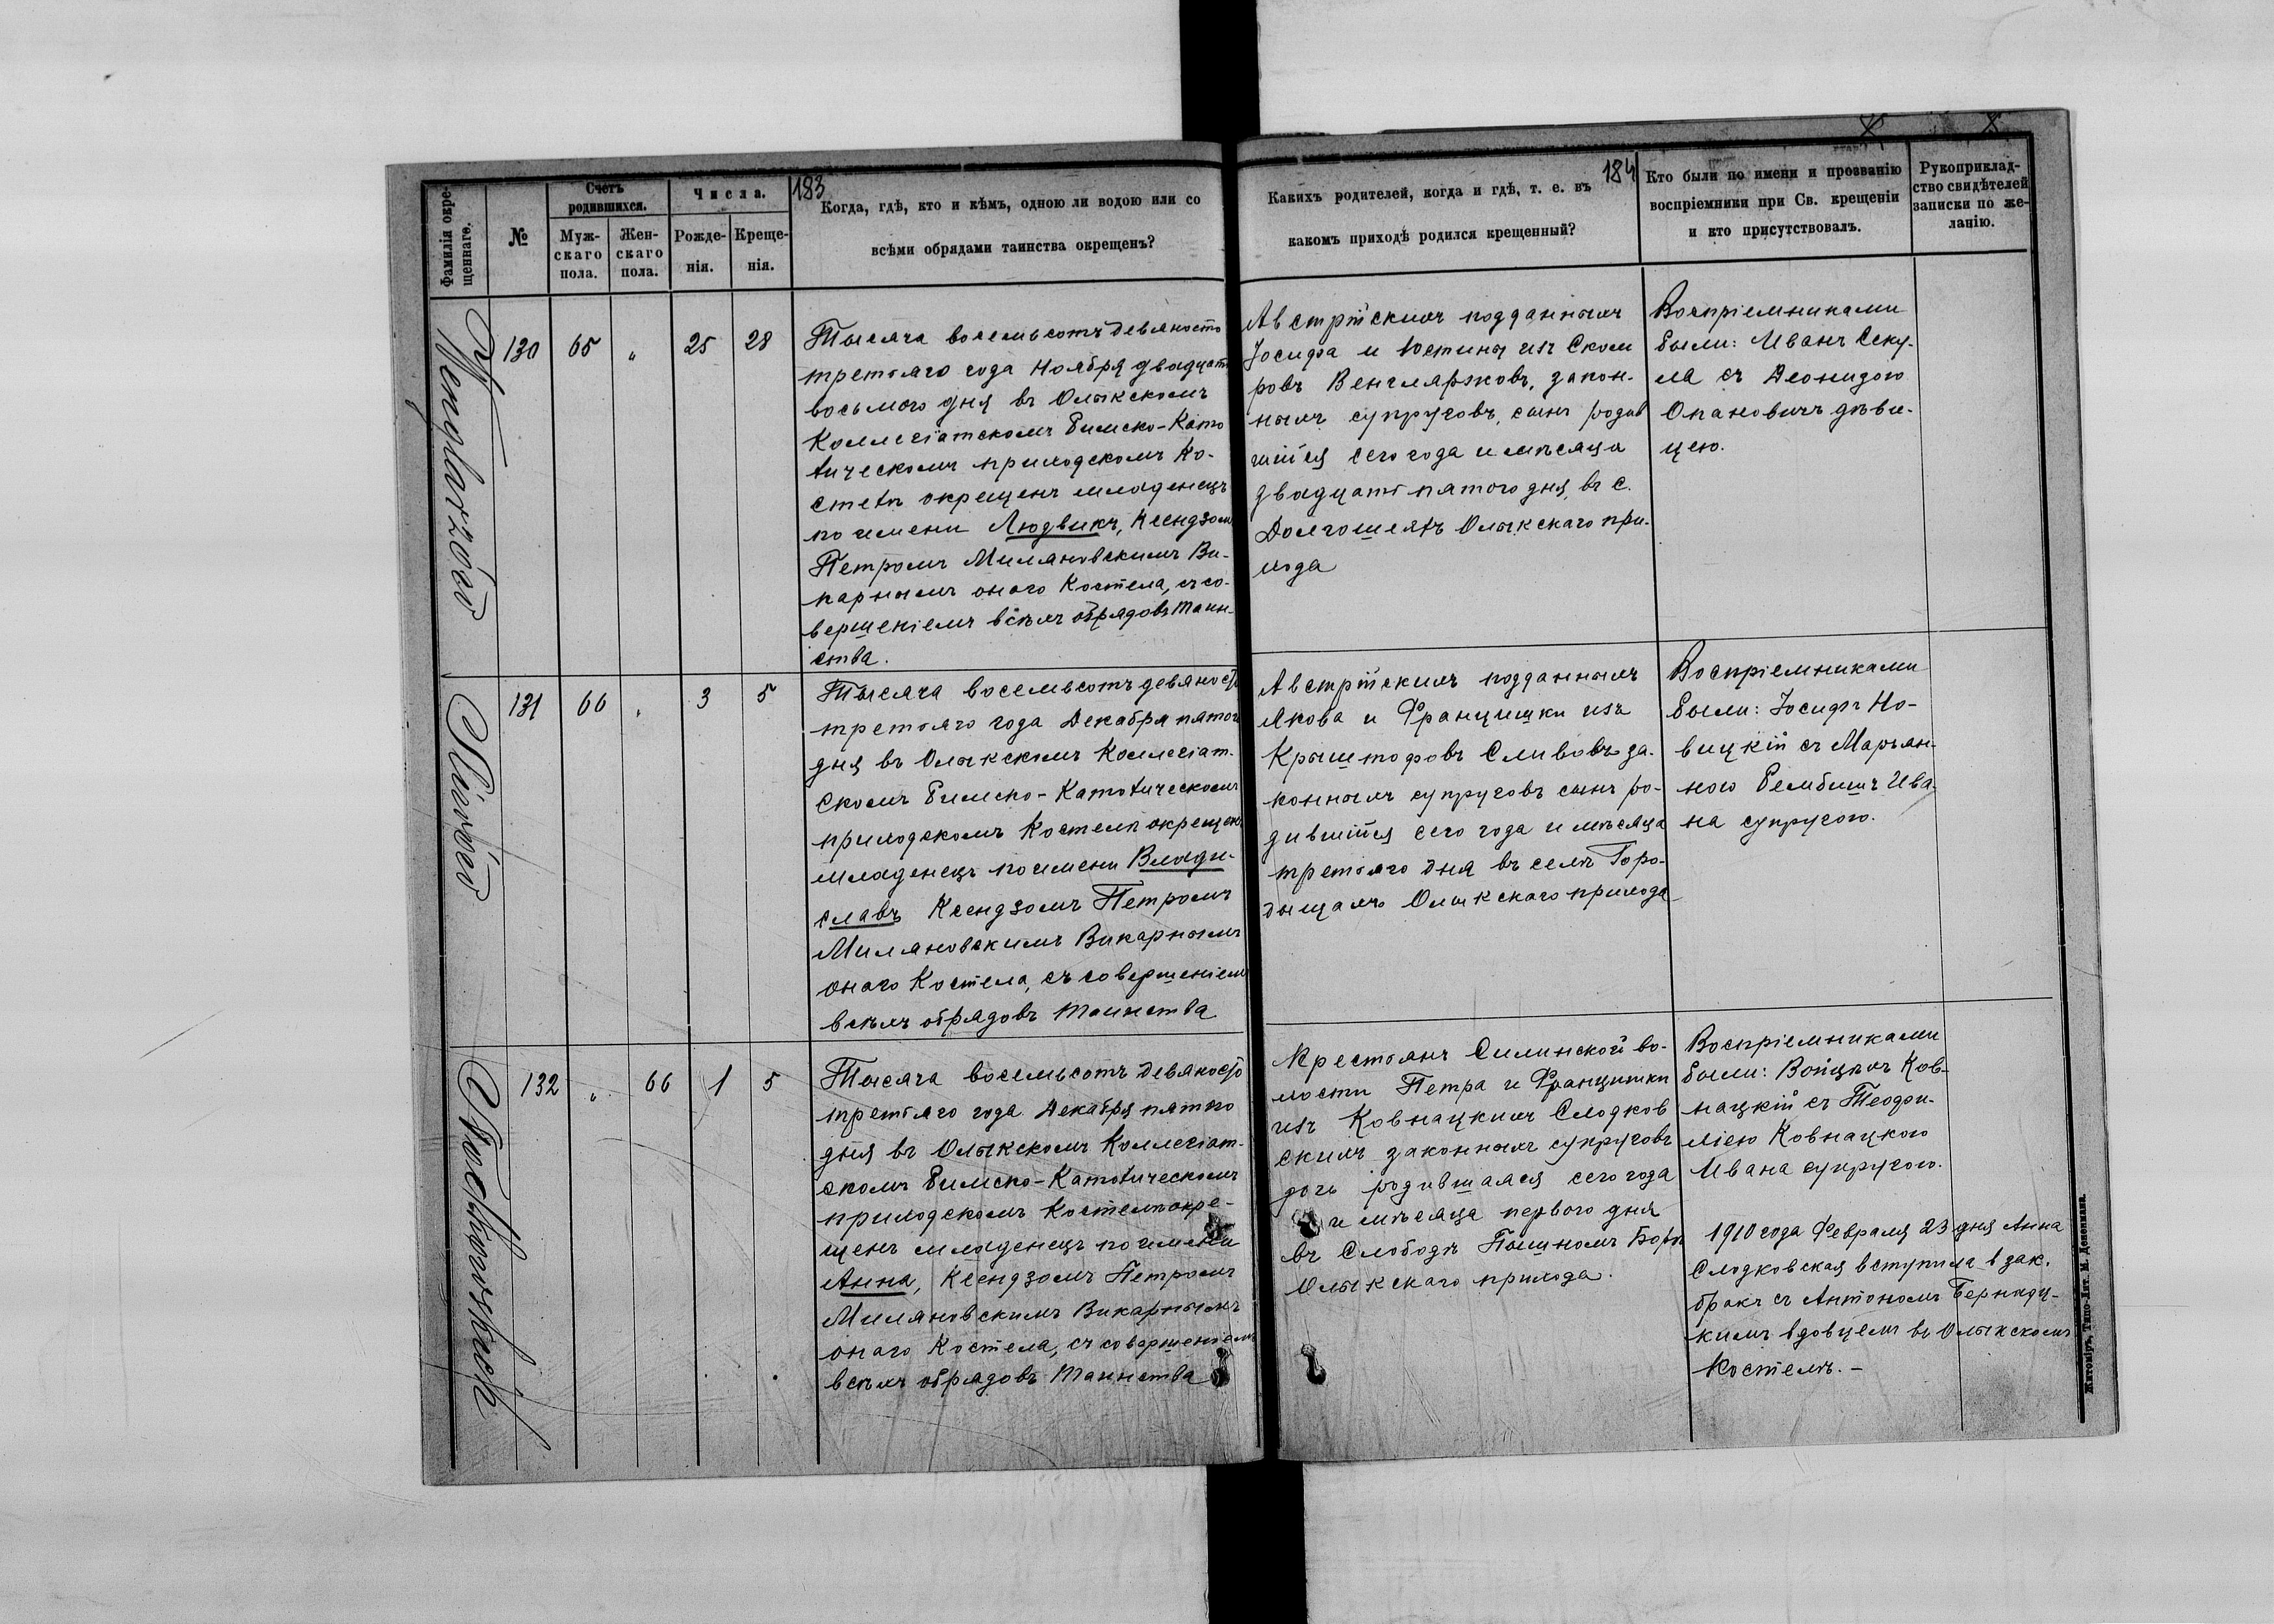 183
184
Фамилія окре-
щеннаго.
№
Счетъ
родившихся.
Муж-
скаго
пола.
Жен-
скаго
пола.
Числа.
Рожде-
нія.
Креще-
нія.
Когда, гдѣ, кто и кѣмъ, одною ли водою или со
всѣми обрядами таинства окрещенъ?
Какихъ родителей, когда и гдѣ, т. е. въ
какомъ приходѣ родился крещенный?
Кто были по имени и прозванію
воспріемники при Св. крещеніи
и кто присутствовалъ.
Рукоприклад-
ство свидѣтелей
записки по же-
ланію.
Węglarzów
130 65 " 25 28
Тысяча восемьсотъ девяносто
третьяго года Ноября двадцать
восьмого дня въ Олыкскомъ
Коллегіатскомъ Римско-Като
лическомъ приходскомъ Ко-
стелѣ окрещенъ младенецъ
по имени Людвикъ, Ксендзомъ
Петромъ Миляновскимъ Ви-
карнымъ онаго Костела, съ со-
вершеніемъ всѣхъ обрядовъ Таин-
ства.
Австрійскихъ подданныхъ
Іосифа и Юстины изъ Скоми
ровъ Венгляржовъ, закон-
ныхъ супруговъ, сынъ родив
шійся сего года и мѣсяца
двадцать пятого дня, въ с.
Долгошеяхъ Олыкскаго при-
хода
Воспріемниками
были: Иванъ Секу-
ла съ Леонидою
Опановичъ дѣви-
цею.
Sliwów
131 66 " 3 5
Тысяча восемьсотъ девяносто
третьяго года Декабря пятого
дня въ Олыкскомъ Коллегіат-
скомъ Римско-Католическомъ
приходскомъ Костелѣ окрещенъ
младенецъ по имени Влади-
славъ Ксендзомъ Петромъ
Миляновскимъ Викарнымъ
онаго Костела, съ совершеніемъ
всѣхъ обрядовъ Таинства
Австрійскихъ подданныхъ
Якова и Францишки изъ
Крыштофовъ Сливовъ за-
конныхъ супруговъ сынъ ро-
дившійся сего года и мѣсяца
третьяго дня въ селѣ Горо-
дыщахъ Олыкскаго прихода
Воспріемниками
были: Іосифъ Но-
вицкій съ Марьян-
ною Рембишъ Ива-
на супругою.
Słodkowskich
132 " 66 1 5
Тысяча восемьсотъ девяносто
третьяго года Декабря пятого
дня въ Олыкскомъ Коллегіат-
скомъ Римско-Католическомъ
приходскомъ Костелѣ окре-
щенъ младенецъ по имени
Анна, Ксендзомъ Петромъ
Миляновскимъ Викарнымъ
онаго Костела, съ совершеніемъ
всѣхъ обрядовъ Таинства
Крестьянъ Силинской во-
лости Петра и Францишки
изъ Ковнацкихъ Слодков
скихъ законныхъ супруговъ
дочь родившаяся сего года
и мѣсяца первого дня
въ Слободѣ Пышномъ Бору
Олыкскаго прихода.
Воспріемниками
были: Войцѣхъ Ков-
нацкій съ Теофи-
лією Ковнацкою
Ивана супругою.
1910 года Февраля 23 дня Анна
Слодковская вступила в зак.
бракъ съ Антономъ Бернадц-
кимъ вдовцемъ въ Олыкскомъ
Костелѣ.-
Житоміръ, Типо-Лит. М. Дененмана.